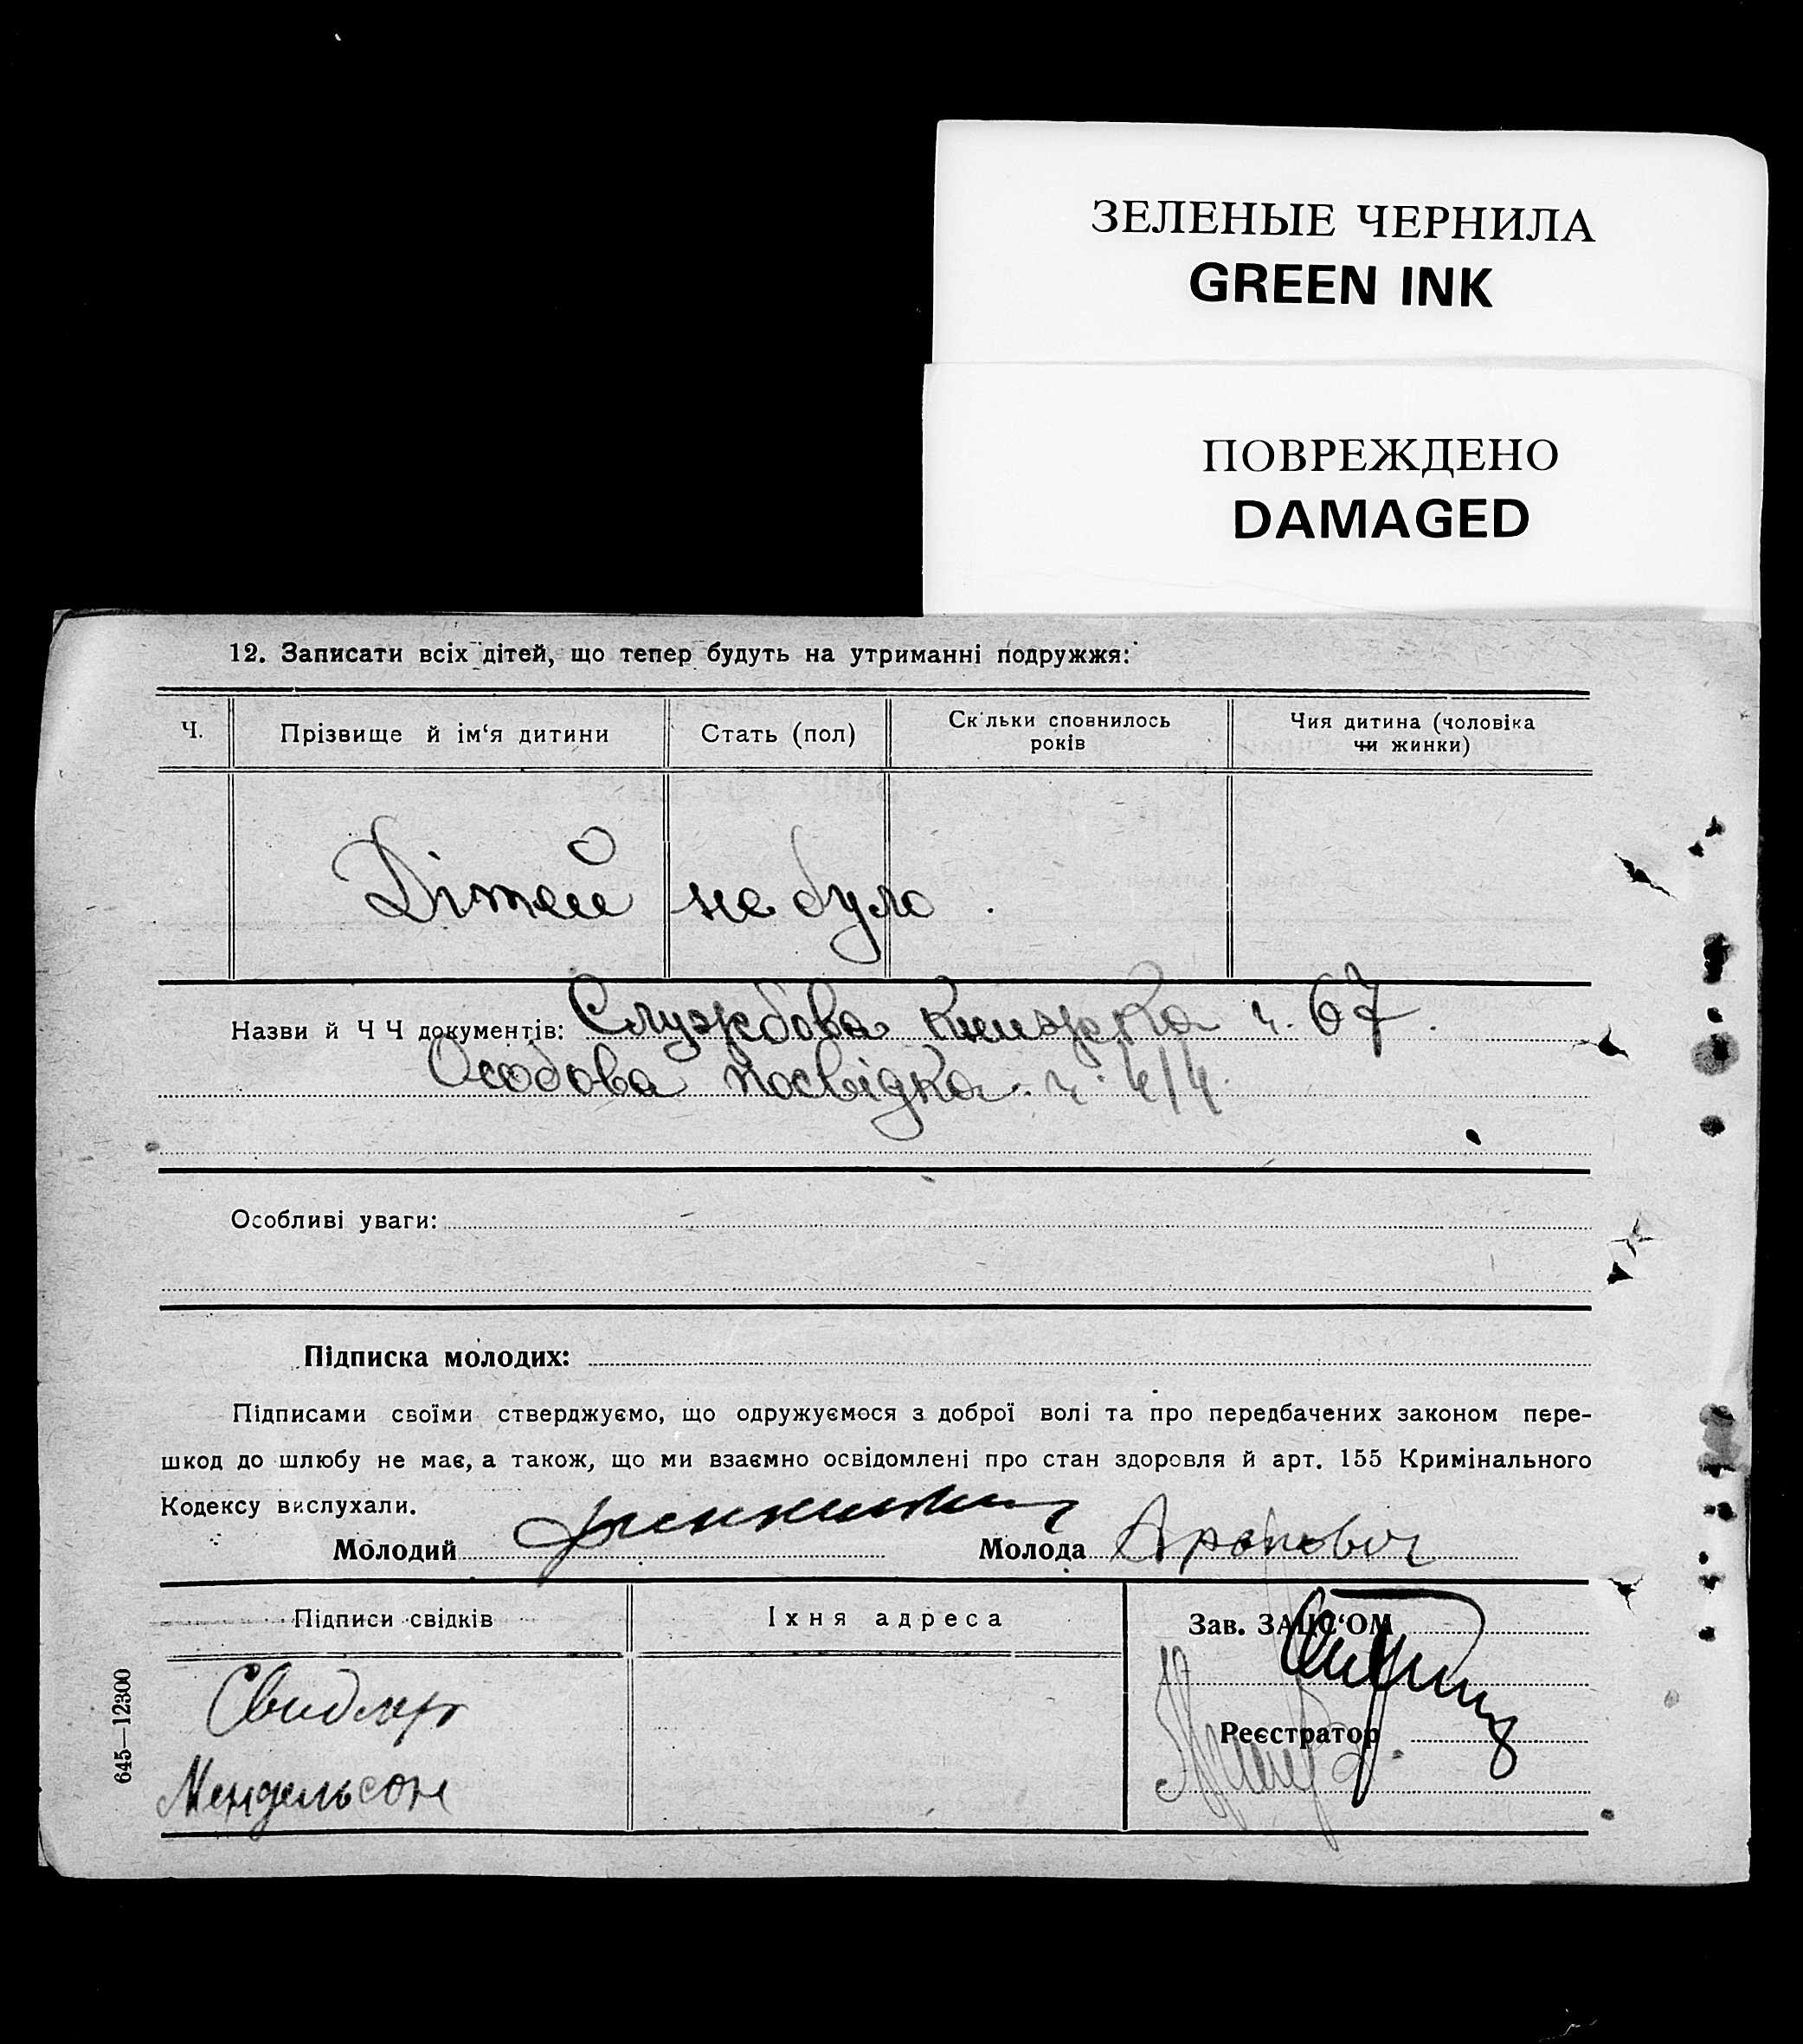 ЗЕЛЕНЫЕ ЧЕРНИЛА
GREEN INK
ПОВРЕЖДЕНО
DAMAGED
12. Записати всіх дітей, що тепер будуть на утриманні подружжя:
Ч.
Прізвище й ім‘я дитини
Стать (пол)
Скільки сповнилось
років
Чия дитина (чоловіка
чи жинки)
Дітей не було.
Назви й Ч Ч документів: Службова книжка ч. 67.
Особова посвідка ч. 414.
Особливі уваги:
Підписка молодих:
Підписами своїми стверджуємо, що одружуємося з доброї волі та про передбачених законом пере-
шкод до шлюбу не має, а також, що ми взаємно освідомлені про стан здоровля й арт. 155 Кримінального
Кодексу вислухали.
Молодий
Молода Аронович
Підписи свідків
Іхня адреса
Зав. ЗАЦС‘ОМ
Свидлер
Реєстратор
Мендельсон
645—12300